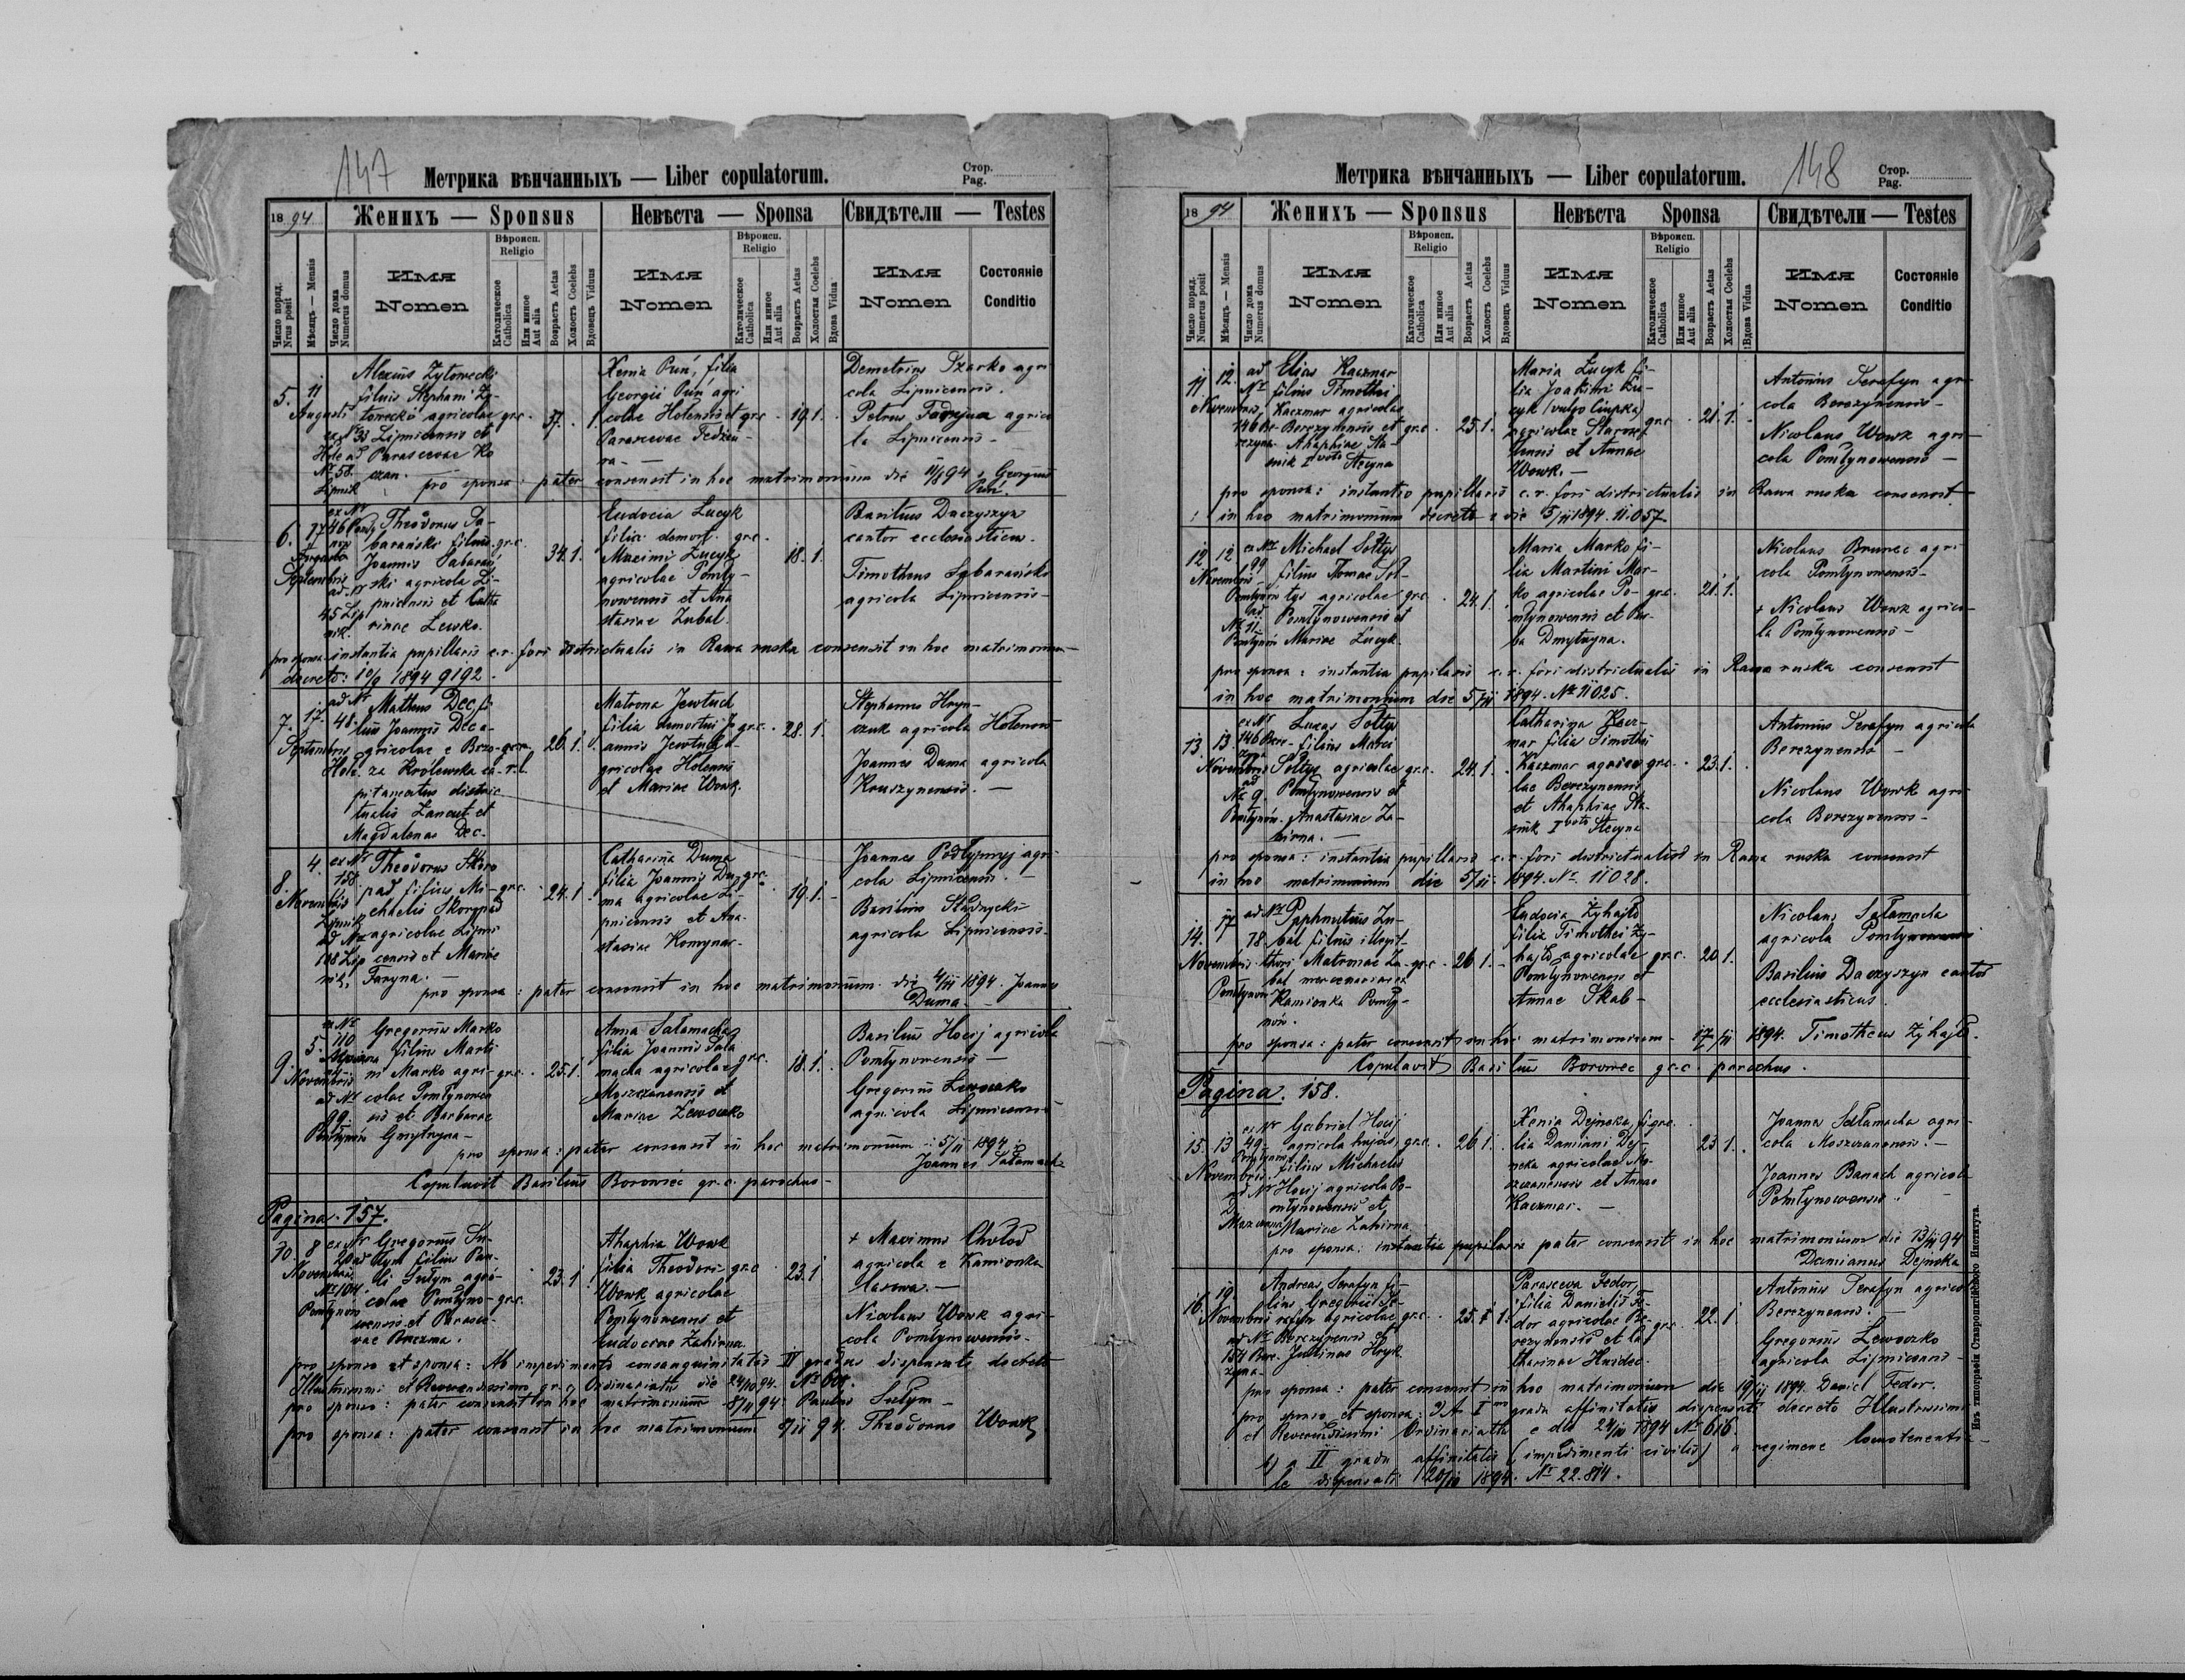 147
Метрика вѣнчанныхъ — Liber copulatorum.
Стор.
Pag.
1894
Женихъ — Sponsus
Невѣста — Sponsa
Свидѣтели — Testes
Число поряд. Nrus posit
Мѣсяцъ — Mensis
Число дома Numerus domus
Имя Nomen
Вѣроисп. Religio
Католическое Catholica
Или иное Aut alia
Возрастъ Aetas
Холостъ Coelebs
Вдовецъ Viduus
Имя Nomen
Вѣроисп. Religio
Католическое Catholica
Или иное Aut alia
Возрастъ Aetas
Холостая Coelebs
Вдова Vidua
Имя Nomen
Состояніе Conditio
5. 11 Augusti
ex Nr 33 Hole ad Nr 58. Lipnik
Alexius Zytowecki
filius Stephani Zy-
towecki agricolae
Lipnicensis et
Parascevae Ko
czan.
gr.c. 37. 1.
Xenia Puń, filia
Georgii Puń agri
colae Holensis et
Parascevae Fedziu-
ra —
gr.c. 19. 1.
Demetrius Szarko agri
cola Lipnicensis.
Petrus Fadejna agrico
la Lipnicensis —
pro sponsa: pater consensit in hoc matrimonium die 11/8 94 Georgius
Puń.
6. 17 Septembris
ad Nr 45 Lipnik.
Theodorus Sa-
barański filius
Joannis Sabarań
ski agricola Li-
pnicensis et Catha
rinae Lewko.
gr.c. 34. 1.
Eudocia Łucyk
filia demort.
Maximi Łucyk
agricolae Pomły-
nowensis et Ana
stasiae Zubal.
gr.c. 18. 1.
Basilius Daczyszyn
cantor ecclesiasticus.
Timotheus Sabarański
agricola Lipnicensis —
pro sponsa instantia pupillaris c.r. fori districtualis in Rawa ruska consensit in hoc matrimonium
decreto: 10/9 1894 9192.
7. 17. Septembris
ad Nr 48. Hole.
Matheus Dec fi
lius Joannis Dec a-
gricolae e Brzo-
za Królewska ca-
pitaneatus distric
tualis Łancut et
Magdalenae Dec.
r.l. 26. 1.
Matrona Jewtuch
filia demortui Jo
annis Jewtuch a-
gricolae Holensis
et Mariae Wowk.
gr.c. 28. 1.
Stephanus Hryn-
czuk agricola Holensis
Joannes Duma agricola
Kruszynensis. —
8. 4. Novembris
ex Nr 158. Lipnik ad Nr 108 Lipnik,
Theodorus Skoro
pad filius Mi-
chaelis Skoropad
agricolae Lipni
censis et Mariae
Faryna. —
gr.c. 24. 1.
Catharina Duma
filia Joannis Du-
ma agricolae Li-
pnicensis et Ana-
stasiae Romynac-
gr.c. 19. 1.
Joannes Podłypnyj agri
cola Lipnicensis. —
Basilius Stadnycki
agricola Lipnicensis —
pro sponsa: pater consensit in hoc matrimonium die 4/11 1894. Joannes
Duma —
9. 5. Novembris
ex Nr 110
ad Nr 99. Pomłynów
Gregorius Marko
filius Marti
ni Marko agri-
colae Pomłynowen
sis et Barbarae
Gmytryna —
gr.c. 25. 1.
Anna Sałamacha
filia Joannis Sała
macha agricolae
Moszczanensis et
Mariae Lewoczko
gr.c. 18. 1.
Basilius Hocij agricola
Pomłynowensis —
Gregorius Lewoczko
agricola Lipnicensis
pro sponsa: pater consensit in hoc matrimonium 5/11 1894
Joannes Sałamacha
Copulavit Basilius Borowiec gr. c. parochus —
Pagina. 157.
10. 8 Novembris
Nr 104. Pomłynów
Gregorius Su-
łym filius Pau-
li Sułym agri-
colae Pomłyno-
wensis et Parasce-
vae Braczma.
gr.c. 23. 1.
Ahaphia Wowk
filia Theodori
Wowk agricolae
Pomłynowensis et
Eudociae Zahirna
gr.c. 23. 1
+ Maximus Chołod
agricola e Kamionka
lasowa. —
Nicolaus Wowk agri-
cola Pomłynowensis —
pro sponso et sponsa: Ab impedimento consanguinitatis IV gradus dispensati decreto
Illustrissimi et Reverendissimi gr. c. Ordinariatus die 24/10 94.
pro sponso: pater consensit in hoc matrimonium 8/11 94. Paulus Sułym —
pro sponsa: pater consensit in hoc matrimonium 8/11 94. Theodorus Wowk
148
Метрика вѣнчанныхъ — Liber copulatorum.
Стор.
Pag.
1894
Женихъ — Sponsus
Невѣста Sponsa
Свидѣтели — Testes
Число поряд. Numerus posit
Мѣсяцъ — Mensis
Число дома Numerus domus
Имя Nomen
Вѣроисп. Religio
Католическое Catholica
Или иное Aut alia
Возрастъ Aetas
Холостъ Coelebs
Вдовецъ Viduus
Имя Nomen
Вѣроисп. Religio
Католическое Catholica
Или иное Aut alia
Возрастъ Aetas
Холостая Coelebs
Вдова Vidua
Имя Nomen
Состояніе Conditio
11. 12. Novembris
ad Nr 146 Berezyna.
Elias Kaczmar
filius Timothei
Kaczmar agricolae
Berezynensis et
Ahaphiae Sta-
snik I voto Stecyna
gr.c. 25. 1.
Maria Łucyk fi-
lia Joakimi Łu-
cyk (vulgo Ciupka)
agricolae Starosel
tensis et Annae
Wowk. —
gr.c. 21. 1.
Antonius Serafyn agri
cola Berezynensis —
Nicolaus Wowk agri-
cola Pomłynowensis —
pro sponsa: instantia pupillaris c. r. fori districtualis in Rawa ruska consensit
in hoc matrimonium decreto e die 5/11 1894. 11.057.
12 12 Novembris
ex Nr 99 Pomłynów ad Nr 11. Pomłynów
Michael Sołtys
filius Tomae Soł-
tys agricolae
Pomłynowensis et
Mariae Łucyk.
gr.c. 24. 1.
Maria Marko fi-
lia Martini Mar-
ko agricolae Po-
młynowensis et Bar-
ba Dmytryna.
gr.c. 21. 1.
Nicolaus Brunec agri
cola Pomłynowensis —
+ Nicolaus Wowk agrico-
la Pomłynowensis —
pro sponsa: instantia pupilaris c. r. fori districtualis in Rawa ruska consensit
in hoc matrimonium die 5/11 1894. Nr 11025.
13. 13. Novembris
ex Nr 146 Berezyna ad Nr 9. Pomłynów.
Lucas Sołtys
filius Marci
Sołtys agricolae
Pomłynowensis et
Anastasiae Za-
hirna. —
gr.c. 24. 1.
Catharina Kacz-
mar filia Timothei
Kaczmar agrico
lae Berezynensis
et Ahaphiae Sta-
snik I voto Stecyna
gr.c. 23. 1.
Antonius Serafyn agricola
Berezynensis —
Nicolaus Wowk agri-
cola Berezynensis —
pro sponsa: instantia pupillaris c. r. fori districtualis in Rawa ruska consensit
in hoc matrimonium die 5/11 1894. Nr. 11028.
14. 17 Novembris
ad Nr 78. Pomłynów
Paphnutius Zu-
bal filius illegit-
thori Matronae Zu-
bal mercenariae a
Kamionka Pomły-
nów.
gr.c. 26 1.
Eudocia Zyhajło
filia Timothei Zy-
hajło agricolae
Pomłynowensis et
Annae Skab —
gr.c. 20 1.
Nicolaus Sałamacha
agricola Pomłynowensis
Basilius Daczyszyn cantor
ecclesiasticus.
pro sponsa: pater consensit in hoc matrimonium 17/11 1894. Timotheus Zyhajło.
Copulavit Basilius Borowiec gr. c. parochus.
Pagina. 158.
15. 13 Novembris
ex Nr 49. Pomłynów
Gabriel Hocij
agricola hujas,
filius Michaelis
Hocij agricola Po-
młynowensis et
Mariae Zahirna
gr.c. 26 1.
Xenia Dejneka fi-
lia Damiani Dej-
neka agricolae Mo-
szczanensis et Annae
Kaczmar. —
gr.c. 23 1.
Joannes Sałamacha agri-
cola Moszczanensis. —
Joannes Banach agricola
Pomłynowensis. —
pro sponsa: instantia pupilaris pater consensit in hoc matrimonium die 13/11 94
Damianus Dejneka
16. 19. Novembris
ad Nr 154 Berezyna —
Andreas Serafyn fi-
lius Gregorii Se-
rafyn agricolae
Berezynensis et
Justinae Hryk
gr.c. 25. 1
Parasceva Fedor,
filia Danielis Fe-
dor agricolae Be-
rezynensis et Ca-
tharinae Huidec.
gr.c. 22. 1
Antonius Serafyn agricola
Berezynensis. —
Gregorius Lewoczko
agricola Lipnicensis —
pro sponsa: pater consensit in hoc matrimonium die 19/11 1894. Daniel Fedor.
pro sponso et sponsa: gradu affinitatis dispensati decreto Illustrissimi
et Reverendissimi Ordinariatus e die 24/10 1894 Nr 616.
b) a II gradu affinitatis (impedimenti civilis) a regimene locumtenentia-
le dispensati 20/10 1894. Nr 22.814.
Изъ типографіи Ставропигійского Института.